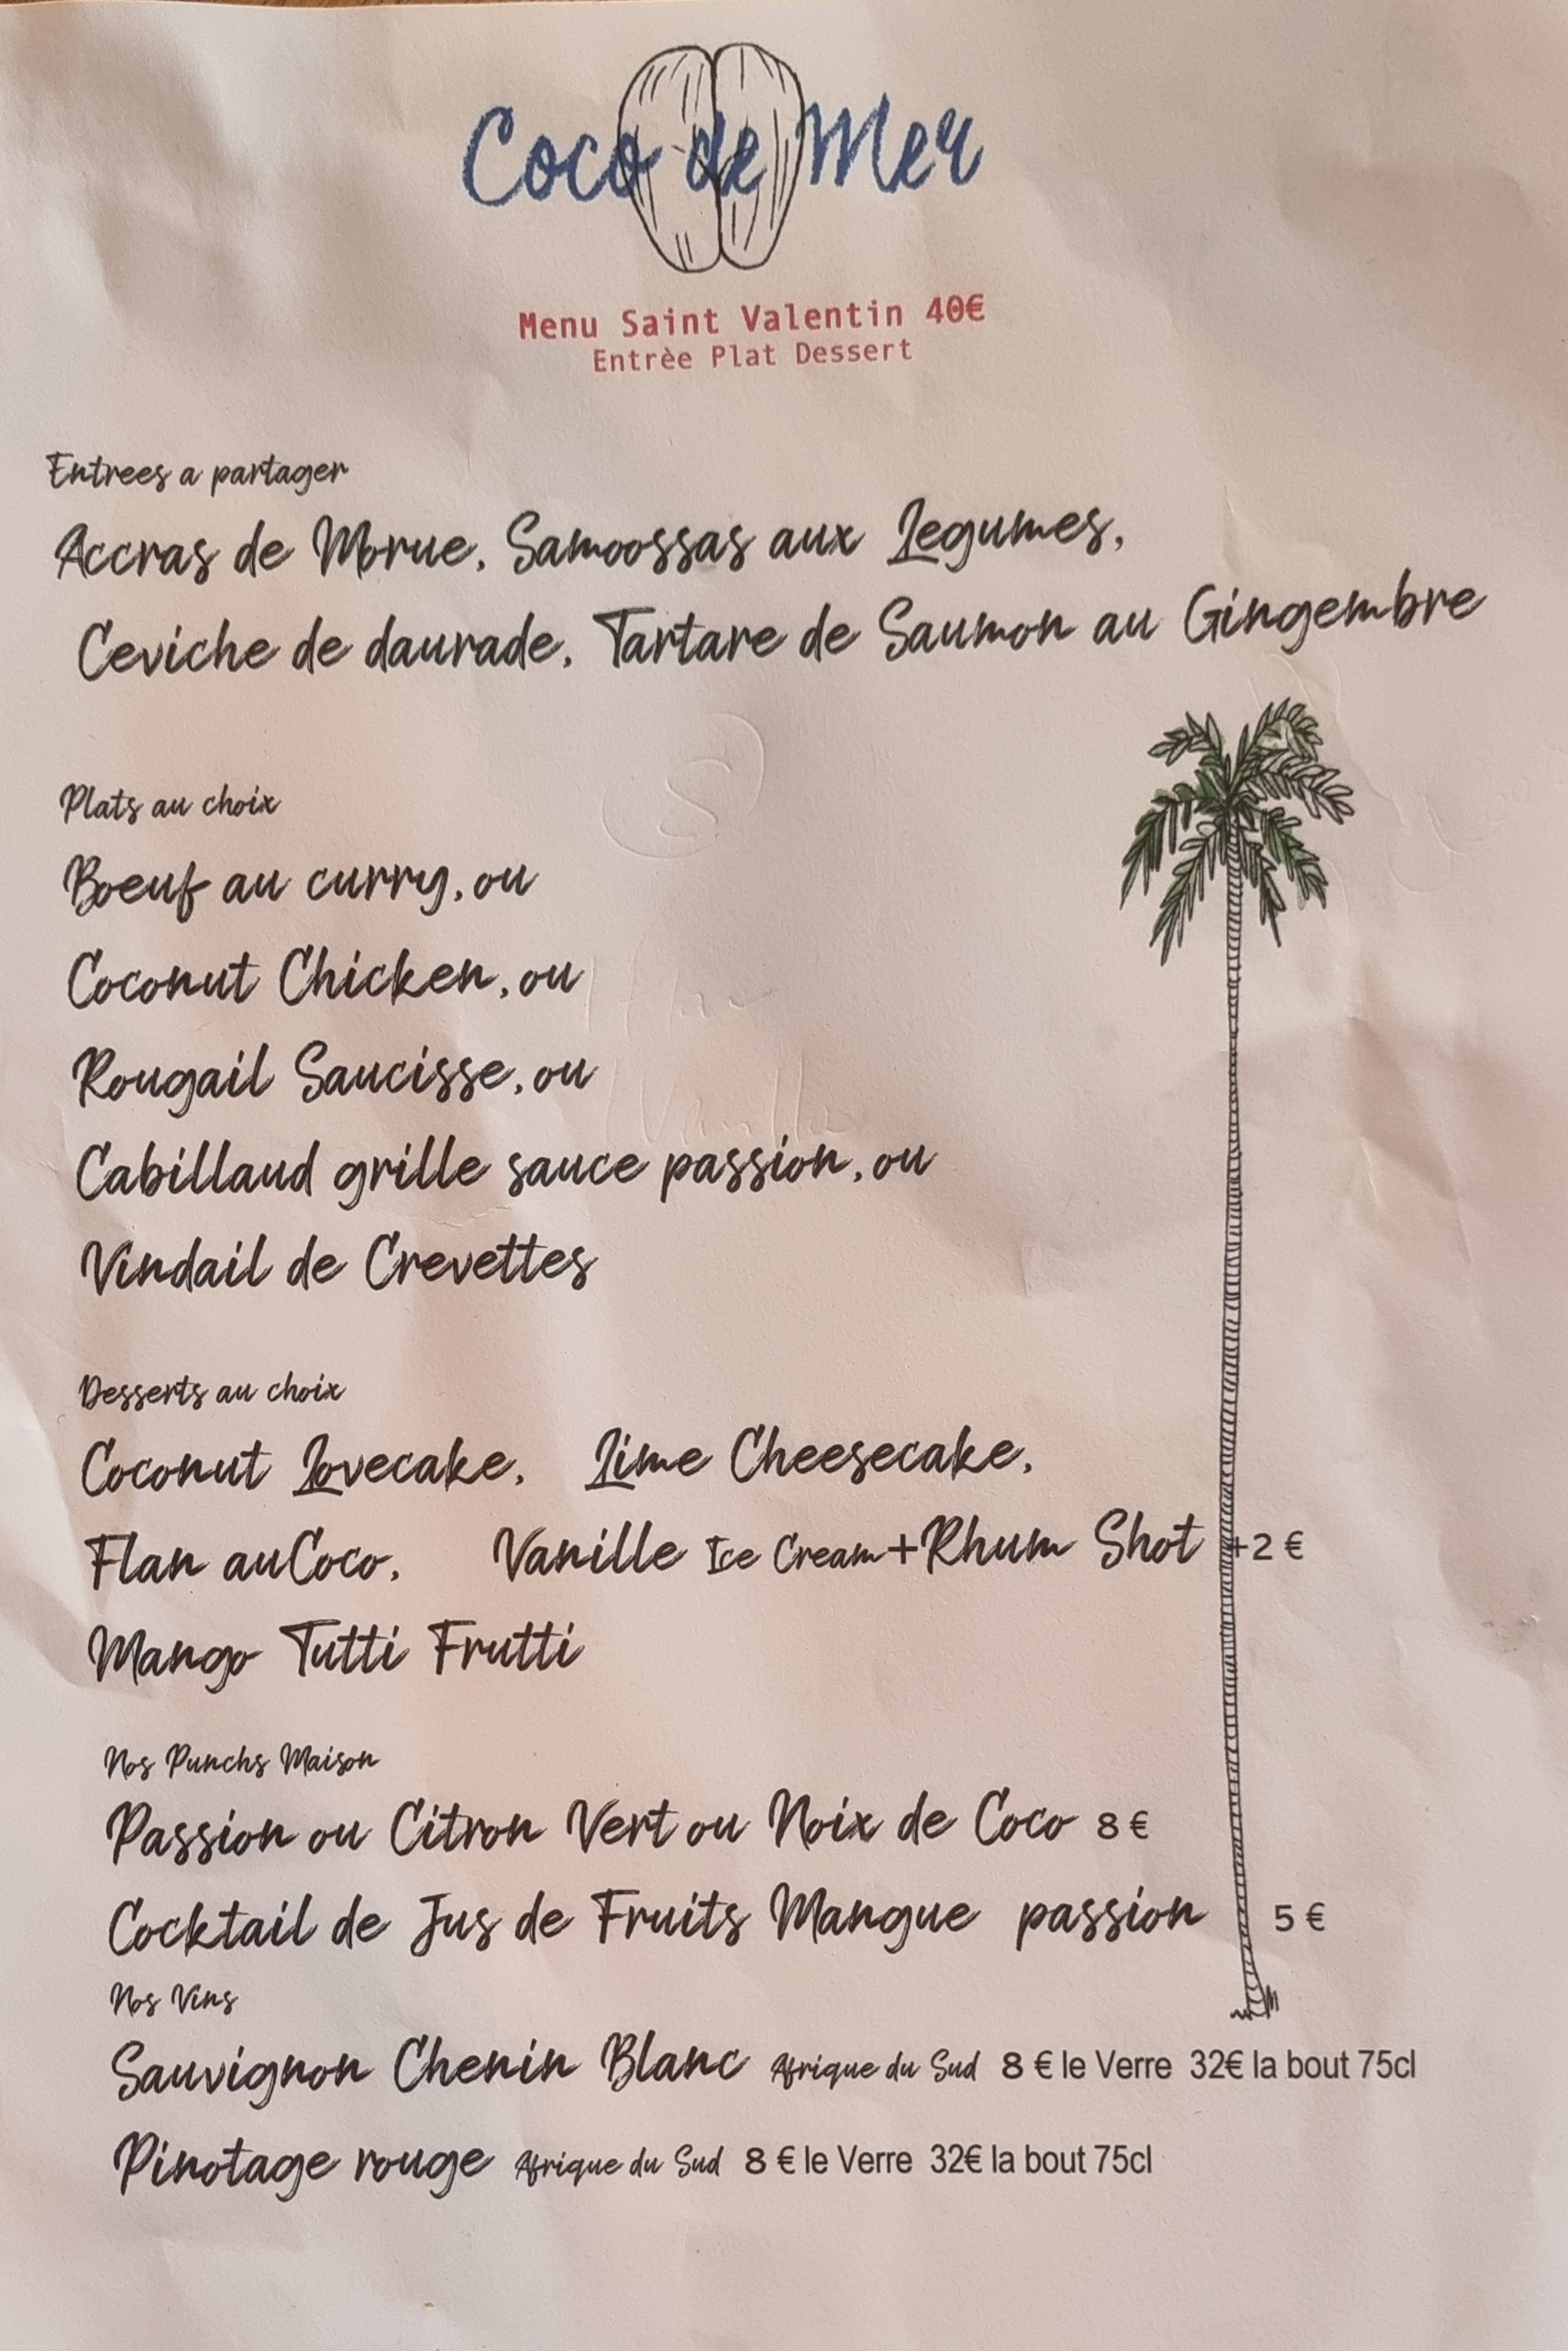 Coco de Mer
Menu Saint Valentin 40€
Entrèe Plat Dessert
Entrees a partager
Accras de Morue, Samoossas aux Legumes,
Ceviche de daurade, Tartare de Saumon au Gingembre
Plats au choix
Boeuf au curry, ou
Coconut Chicken, ou
Rougail Saucisse, ou
Cabillaud grille sauce passion, ou
Vindail de Crevettes
Desserts au choix
Coconut Lovecake, Lime Cheesecake,
Flan auCoco, Vanille Ice Cream+Rhum Shot +2 €
Mango Tutti Frutti
Nos Punchs Maison
Passion ou Citron Vert ou Noix de Coco 8 €
Cocktail de Jus de Fruits Mangue passion 5 €
Nos Vins
Sauvignon Chenin Blanc Afrique du Sud 8 € le Verre 32€ la bout 75cl
Pinotage rouge Afrique du Sud 8 € le Verre 32€ la bout 75cl